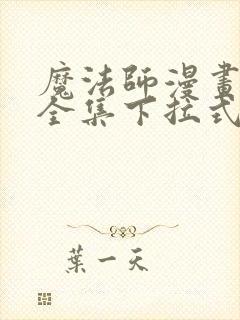 魔法師漫畫
全集下拉式
葉一天